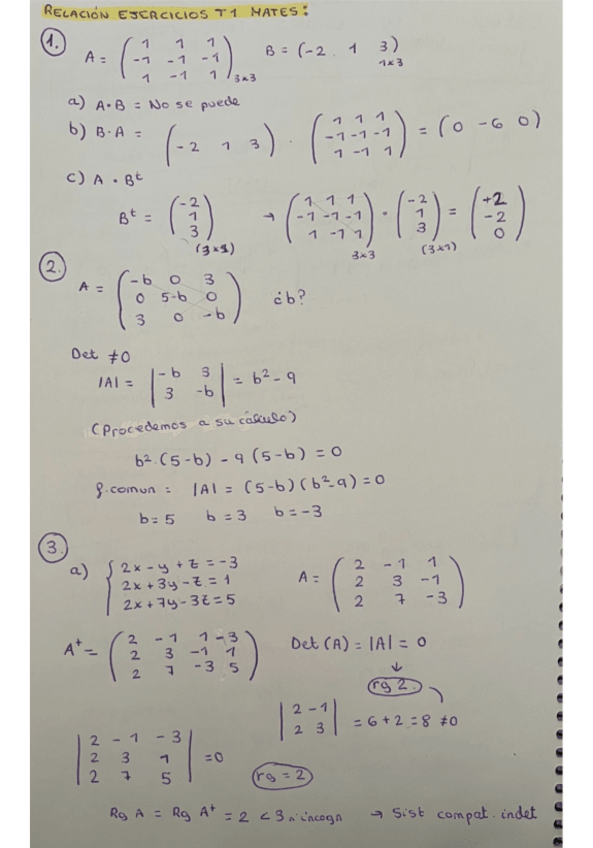 RELACIÓN EJERCICIOS T1 MATES:
1. A = ( 1 1 1 / -1 -1 -1 / 1 -1 1 ) 3x3 B = (-2 1 3) 1x3
a) A·B = No se puede
b) B·A = ( -2 1 3 ) · ( 1 1 1 / -1 -1 -1 / 1 -1 1 ) = (0 -6 0)
c) A · Bt
Bt = ( -2 / 1 / 3 ) (3x1) → ( 1 1 1 / -1 -1 -1 / 1 -1 1 ) 3x3 · ( -2 / 1 / 3 ) (3x1) = ( +2 / -2 / 0 )
2. A = ( -b 0 3 / 0 5-b 0 / 3 0 -b ) ¿b?
Det ≠0
|A| = | -b 3 / 3 -b | = b² - 9
(Procedemos a su cálculo)
b²·(5-b) - 9(5-b) = 0
f.comun : |A| = (5-b)(b²-9) = 0
b=5 b=3 b=-3
3. a) { 2x - y + z = -3 / 2x + 3y - z = 1 / 2x + 7y - 3z = 5 A = ( 2 -1 1 / 2 3 -1 / 2 7 -3 )
A+ = ( 2 -1 1 -3 / 2 3 -1 1 / 2 7 -3 5 ) Det (A) = |A| = 0
↓
rg 2.
| 2 -1 / 2 3 | = 6+2 = 8 ≠0
| 2 -1 -3 / 2 3 1 / 2 7 5 | =0 rg = 2
Rg A = Rg A+ = 2 < 3 n·incogn → Sist compat. indet